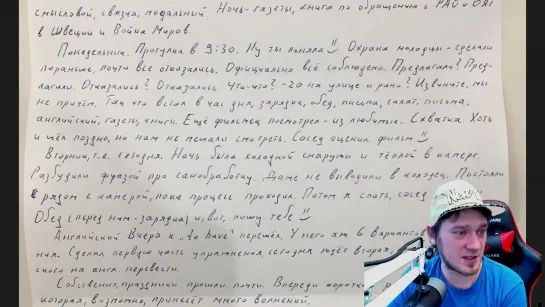 смысловой, связка, модальный Ночь-газеты, книга по обращению с РАО и ОЯТ
в Швеции и Война Миров.
Понедельник. Прогулка в 9:30. Ну ты поняла Охрана молодцы-сделали
пораньше, почти все отказались. Официально всё соблюдено. Предлагали? Пред-
лагали. Отказались? Отказались. Что-что? -20 на улице и рано? Извините, мы
не причём. Так что встал в час дня, зарядка, обед, письма, салат, письма,
английский, газеты, книги. Ещё фильмец посмотрел-из любимых. Схватка. Хоть
и шёл поздно, но нам не мешали смотреть. Сосед оценил фильм
Вторник, т.е. сегодня. Ночь была холодной снаружи и тёплой в камере.
Разбудили фразой про санобработку. Даже не выводили в колодец. Постояли
рядом с камерой, пока процесс проходил. Потом я спать, сосед
Обед (перед ним-зарядка) и, вот, пишу тебе
Английский. Вчера к "to have" перешёл. У него аж 6 вариантов
ния. Сделал первую часть упражнения, сегодня ждёт вторая,
ского на англ. перевести.
Собственно, праздники прошли почти. Впереди короткая
которая, возможно, принесёт много волнений.
SQUARE